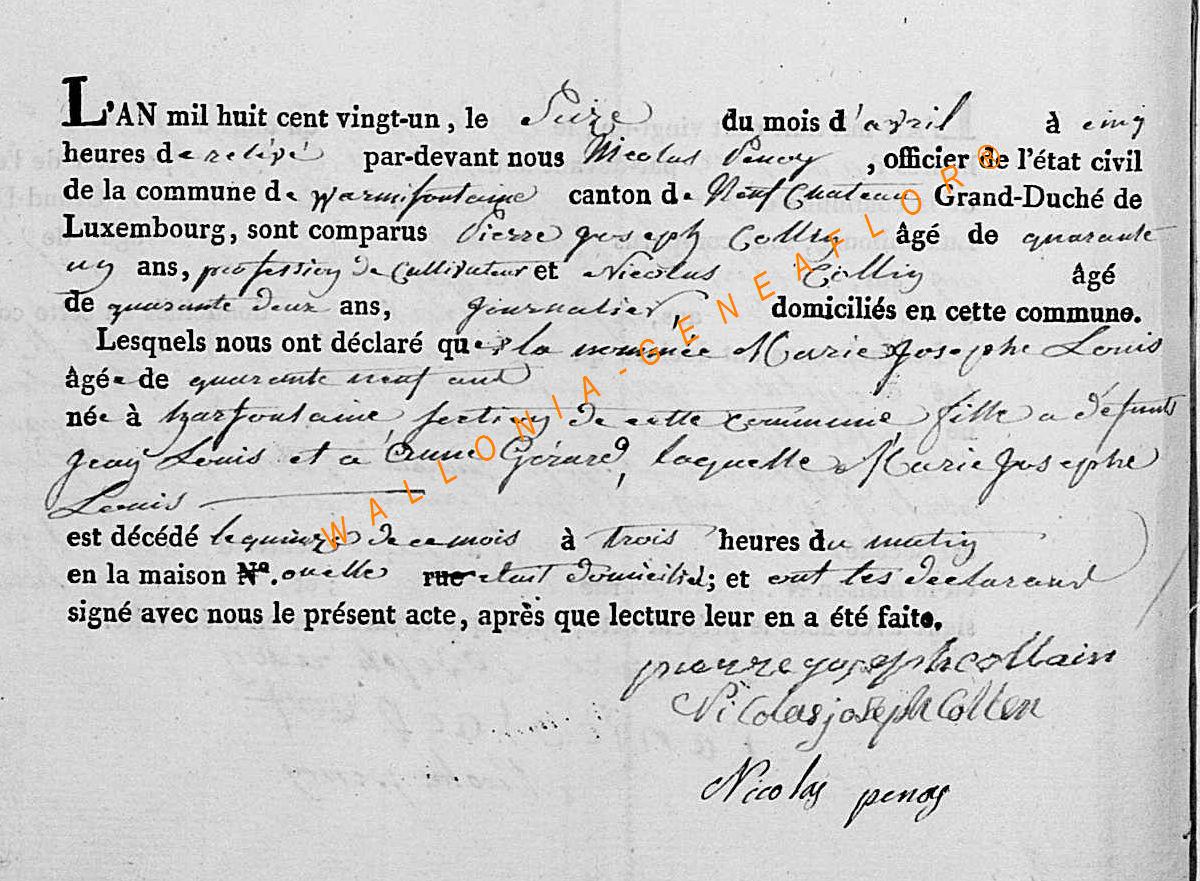 L'AN mil huit cent vingt-un, le Seize du mois d'avril à cinq
heures de relevé par-devant nous Nicolas Penoy, officier de l'état civil
de la commune de Warmifontaine canton de Neufchateau Grand-Duché de
Luxembourg, sont comparus Pierre joseph Collin âgé de quarante
un ans, profession de Cultivateur et Nicolas Collin âgé
de quarante deux ans, journalier, domiciliés en cette commune.
Lesquels nous ont déclaré que la nommée Marie Josephe Louis
âgée de quarante neuf ans
née à harfontaine section de cette commune fille a défunts
jean Louis et a Anne Gérard, laquelle Marie Josephe
Louis
est décédé le quinze de ce mois à trois heures du matin
en la maison No. ou elle rue etait domicilié; et ont les declarans
signé avec nous le présent acte, après que lecture leur en a été faite.
pierre joseph collain
Nicolas joseph Collen
Nicolas penoy
WALLONIA-GENEAFLOR®